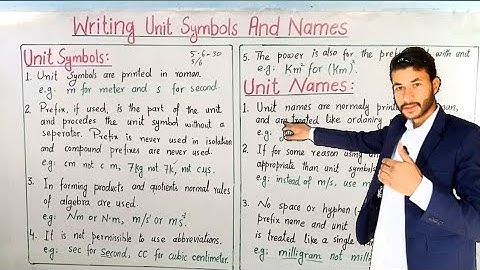 Writing Unit Symbols And Names
Unit Symbols:
5-6-30
5/6
1. Unit Symbols are printed in roman.
e.g: m for meter and s for second.
2. Prefix, if used, is the part of the unit
and procedes the unit symbol without a
seperator. Prefix is never used in isolation
and compound prefixes are never used.
e.g: cm not c m, 7kg not 7k, not cμs.
3. In forming products and quotients normal rules
of algebra are used.
e.g: Nm or N·m, m/s or ms⁻²
4. It is not permissible to use abbreviations.
e.g: sec for second, CC for cubic centimeter.
5. The power is also for the with unit
e.g: Km² for (Km)²
Unit Names:
1. Unit names are normaly
and are treated like ordaniry
e.g:
2. If for some reason using
appropriate than unit
e.g: instead of m/s, use
3. No space or hyphen (-
prefix name and unit
is treated like a single
e.g: milligram not